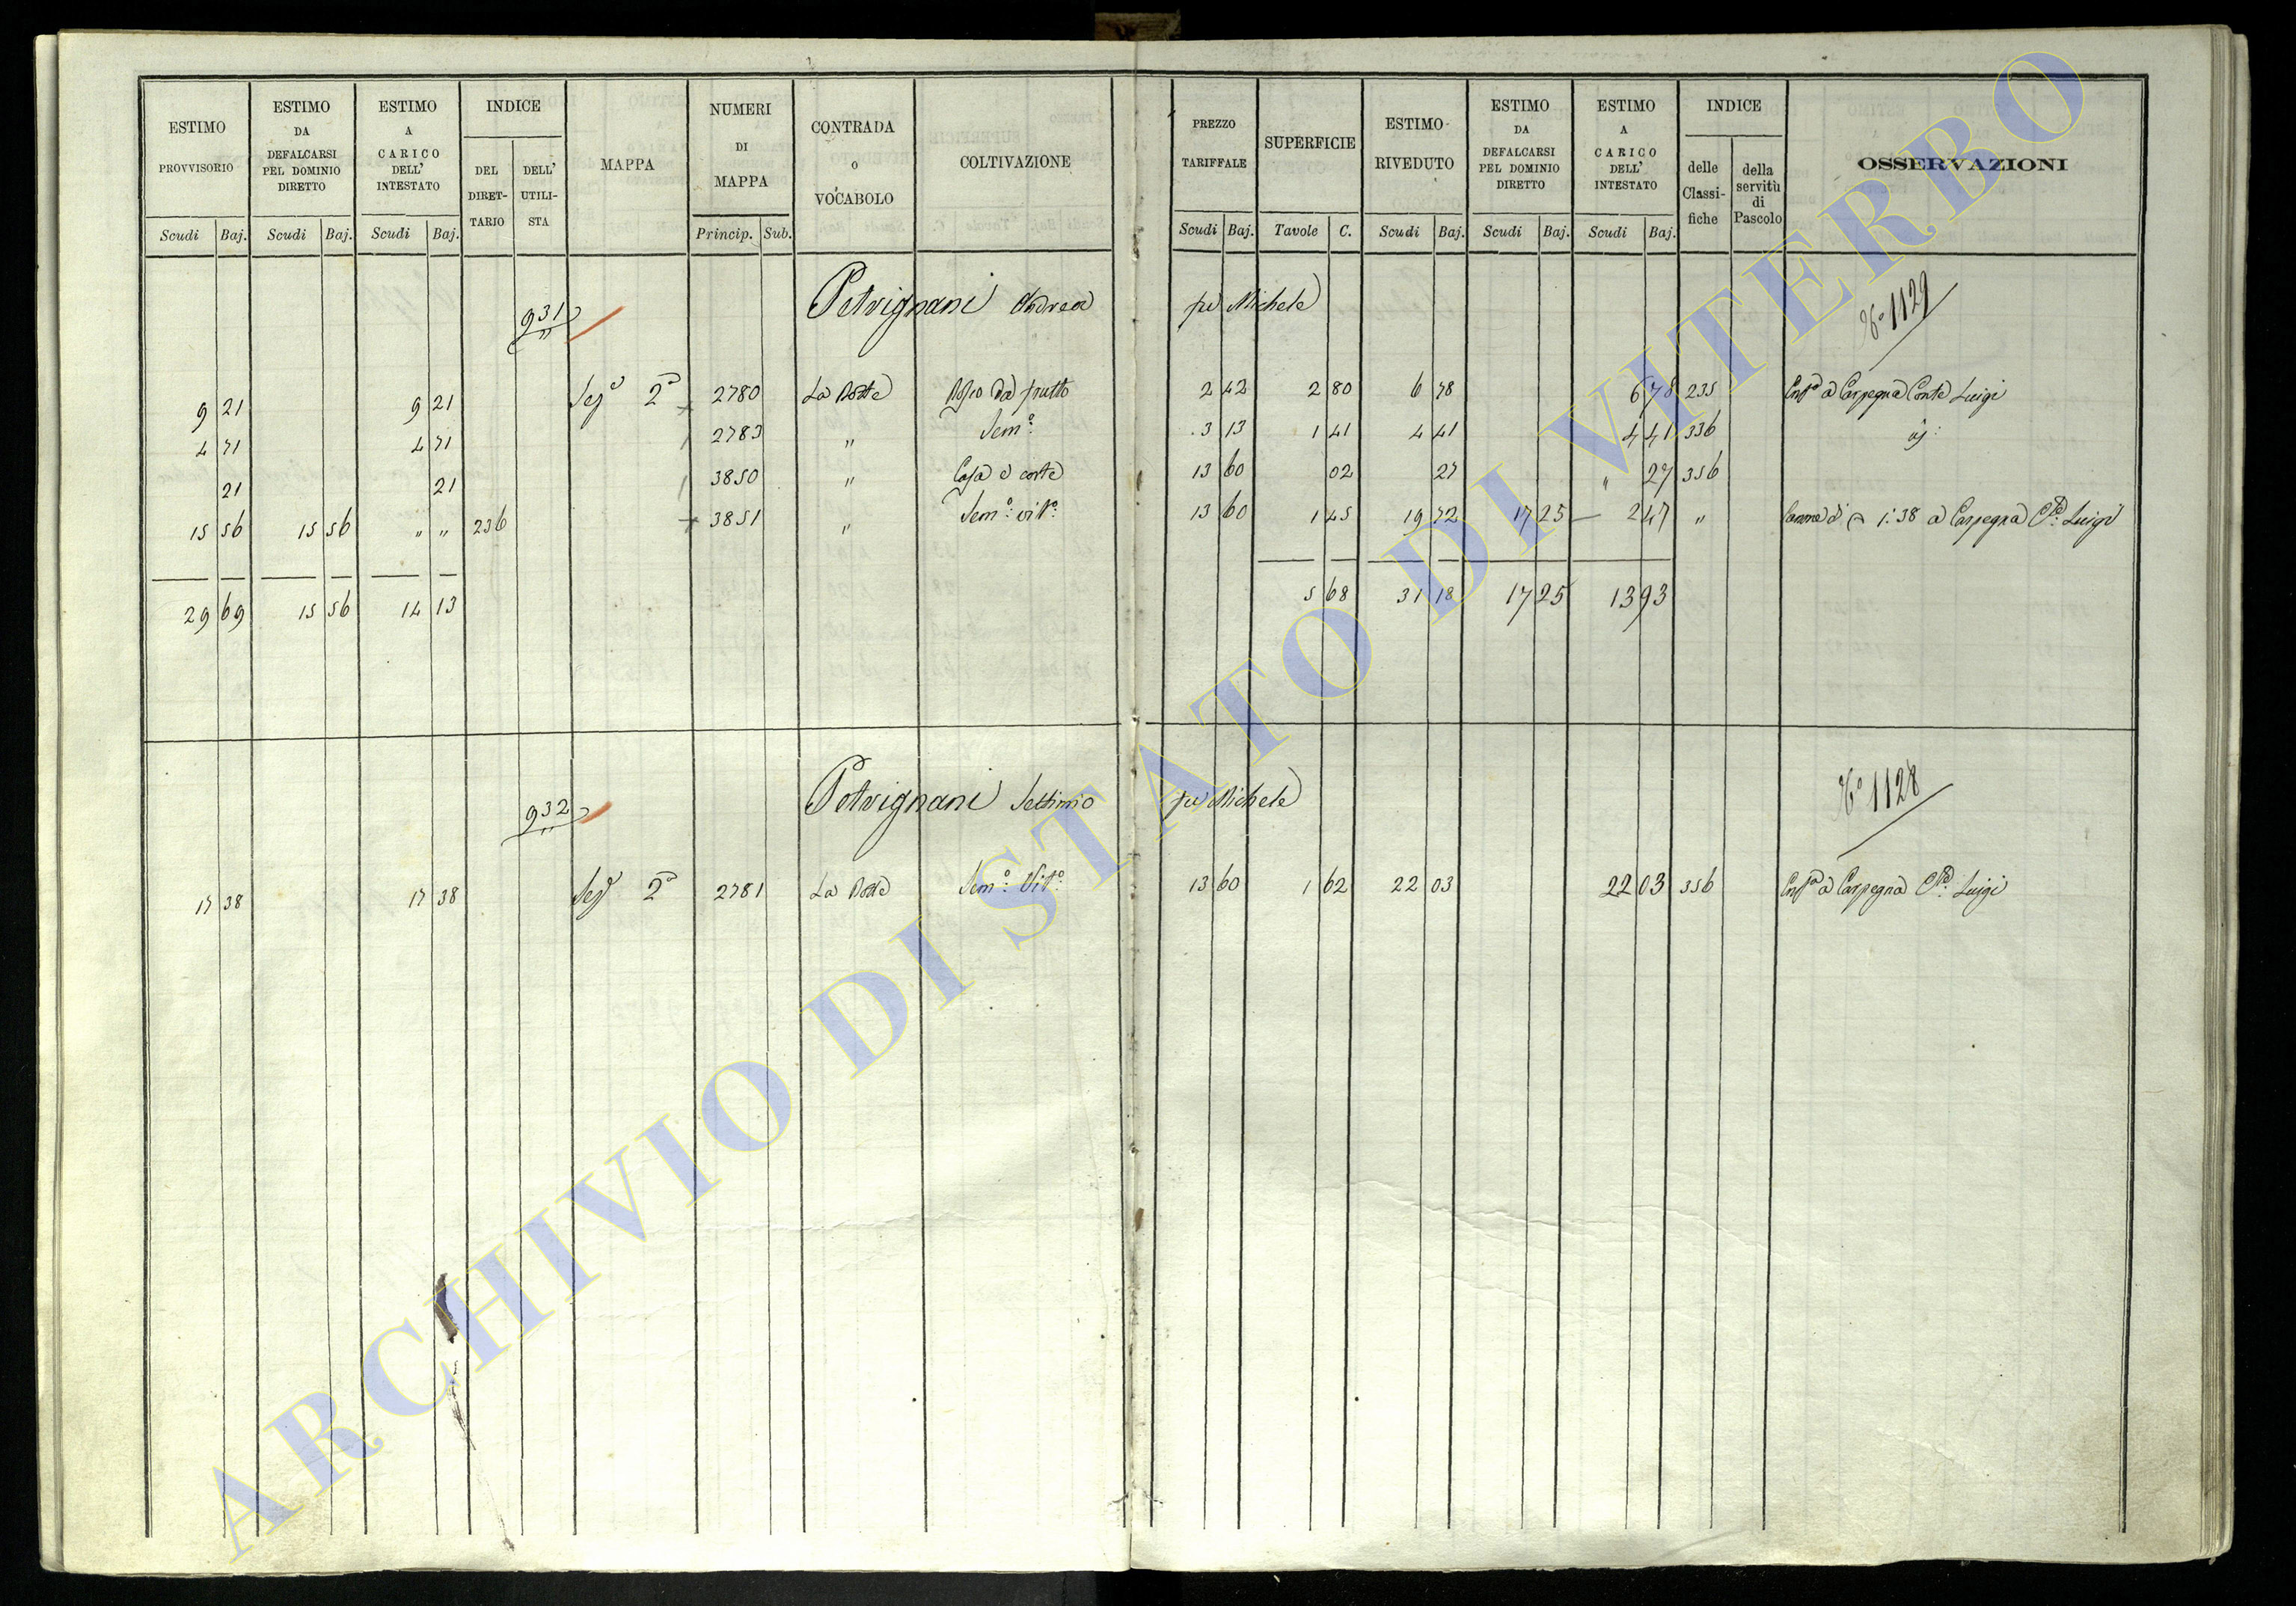 ESTIMO PROVVISORIO Scudi Baj.
ESTIMO DA DEFALCARSI PEL DOMINIO DIRETTO Scudi Baj.
ESTIMO A CARICO DELL' INTESTATO Scudi Baj.
INDICE DEL DIRETTARIO DELL' UTILISTA
MAPPA
NUMERI DI MAPPA Princip. Sub.
CONTRADA O VOCABOLO
COLTIVAZIONE
PREZZO TARIFFALE Scudi Baj.
SUPERFICIE Tavole C.
ESTIMO RIVEDUTO Scudi Baj.
ESTIMO DA DEFALCARSI PEL DOMINIO DIRETTO Scudi Baj.
ESTIMO A CARICO DELL' INTESTATO Scudi Baj.
INDICE delle Classifiche della servitù di Pascolo
OSSERVAZIONI
931 Petrignani Andrea fu Michele No 1129
9 21 9 21 Sez.e 2a 2780 La Botte da frutto 2 42 2 80 6 78 6 78 235 a Carpegna Conte Luigi
4 71 4 71 2783 " Sem.o 3 13 1 41 4 41 4 41 336
21 21 3850 " Casa e corte 13 60 02 27 " 27 356
15 56 15 56 " " 236 3851 " Sem.o vit.o 13 60 1 45 19 72 17 25 2 47 " 1:38 a Carpegna C.te Luigi
29 69 15 56 14 13 5 68 31 18 17 25 13 93
932 Petrignani Settimio fu Michele No 1128
17 38 17 38 Sez.e 2a 2781 La Botte Sem.o Vit.o 13 60 1 62 22 03 22 03 356 a Carpegna C.te Luigi
ARCHIVIO DI STATO DI VITERBO